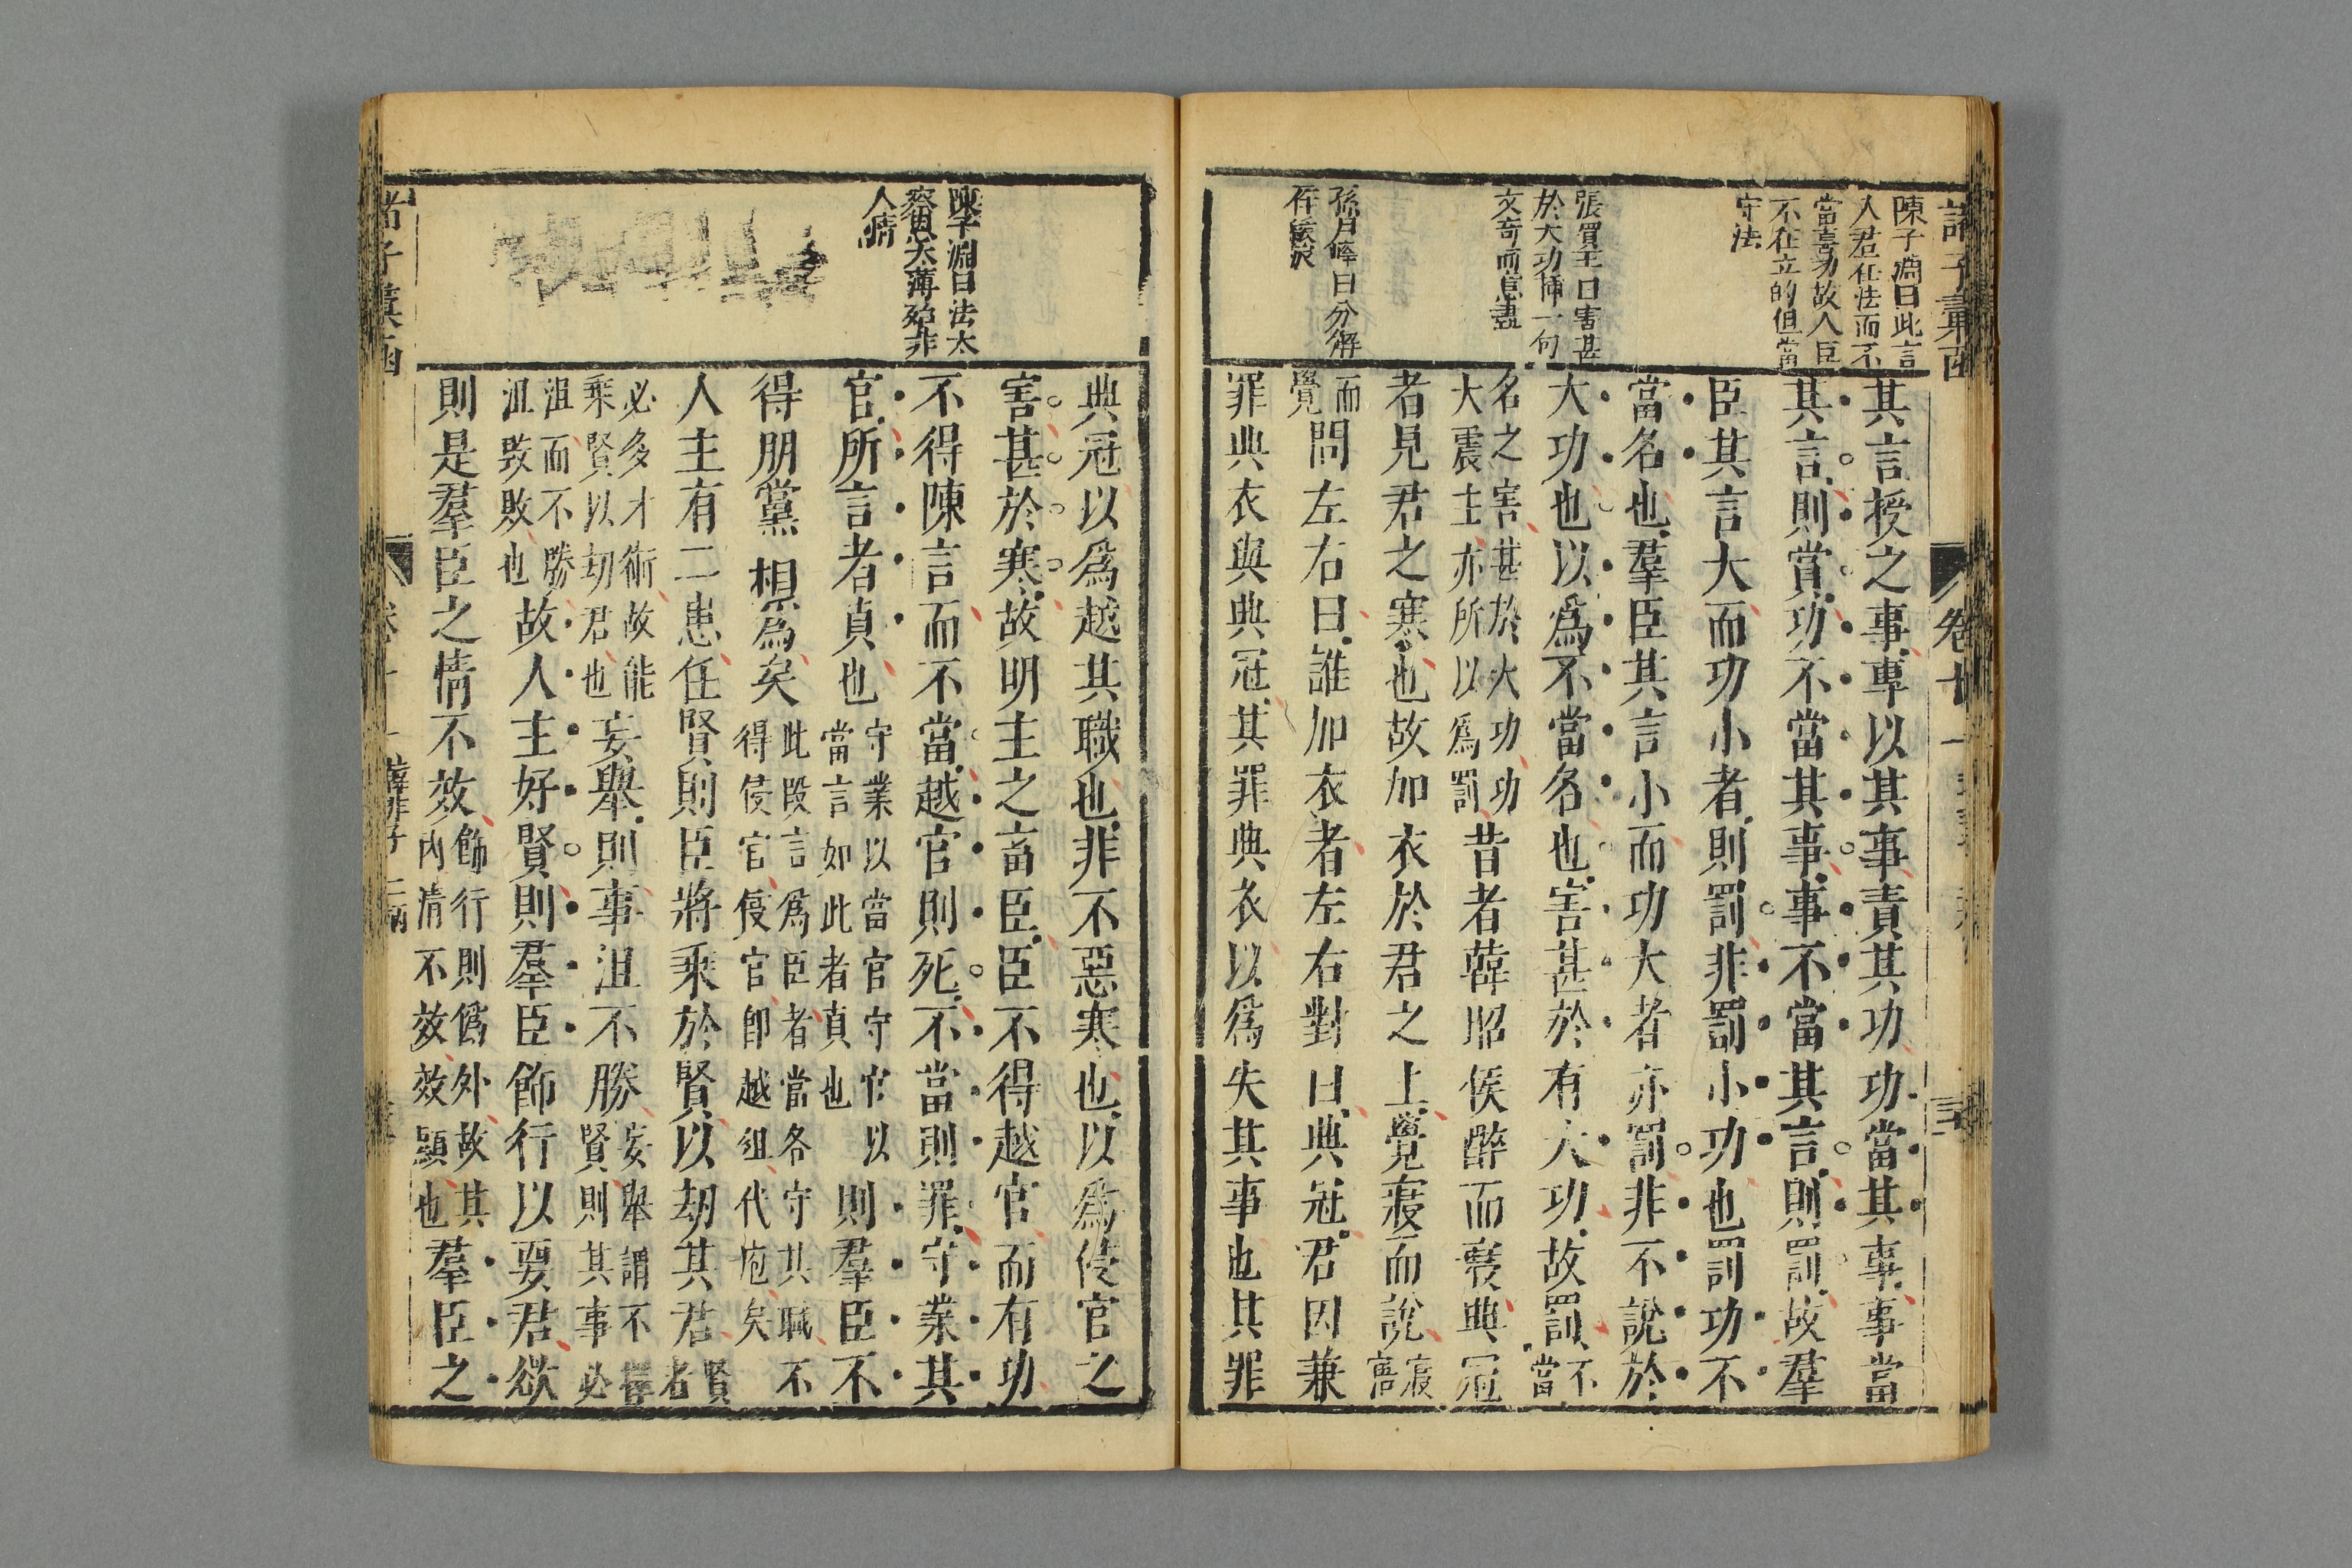 陳子淵曰此言
人君任法而不
當喜功故人臣
不在立的但當
守法
張賓王曰害甚
於大功挿一句
文奇而意盡
孫月峰曰分解
其言授之事專以其事責其功功當其事事當
其言則賞功不當其事事不當其言則罰故羣
臣其言大而功小者則罰非罰小功也罰功不
當名也羣臣其言小而功大者亦罰非不說於
大功也以爲不當名也害甚於有大功故罰不
當
名之害甚於大功功
大震主亦所以爲罰昔者韓昭侯醉而寢典冠
者見君之寒也故加衣於君之上覺寢而說寢
寤
而
覺問左右曰誰加衣者左右對曰典冠君因兼
罪典衣與典冠其罪典衣以爲失其事也其罪
陳子淵曰法太
察恩太薄殆非
人情
典冠以爲越其職也非不惡寒也以爲侵官之
害甚於寒故明主之畜臣臣不得越官而有功
不得陳言而不當越官則死不當則罪守業其
官所言者貞也守業以當官守官以
當言如此者貞也則羣臣不
得朋黨相爲矣此段言爲臣者當各守其職不
得侵官侵官卽越俎代庖矣
人主有二患任賢則臣將乘於賢以刼其君賢
者
必多才術故能
乘賢以刼君也妄舉則事沮不勝妄舉謂不擇
賢則其事必
沮而不勝
沮毀敗也故人主好賢則羣臣飾行以要君欲
則是羣臣之情不效飾行則僞外故其
內情不效效顯也羣臣之